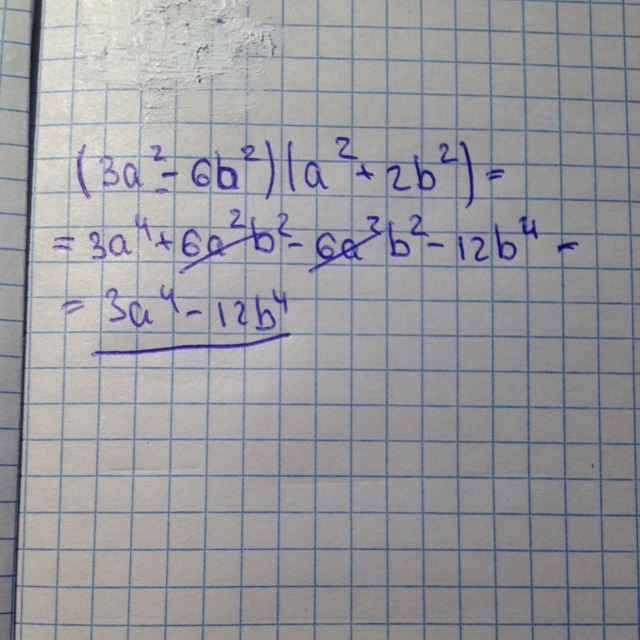 (3a² - 6b²)(a² + 2b²) =
= 3a⁴ + 6a²b² - 6a²b² - 12b⁴ -
= 3a⁴ - 12b⁴